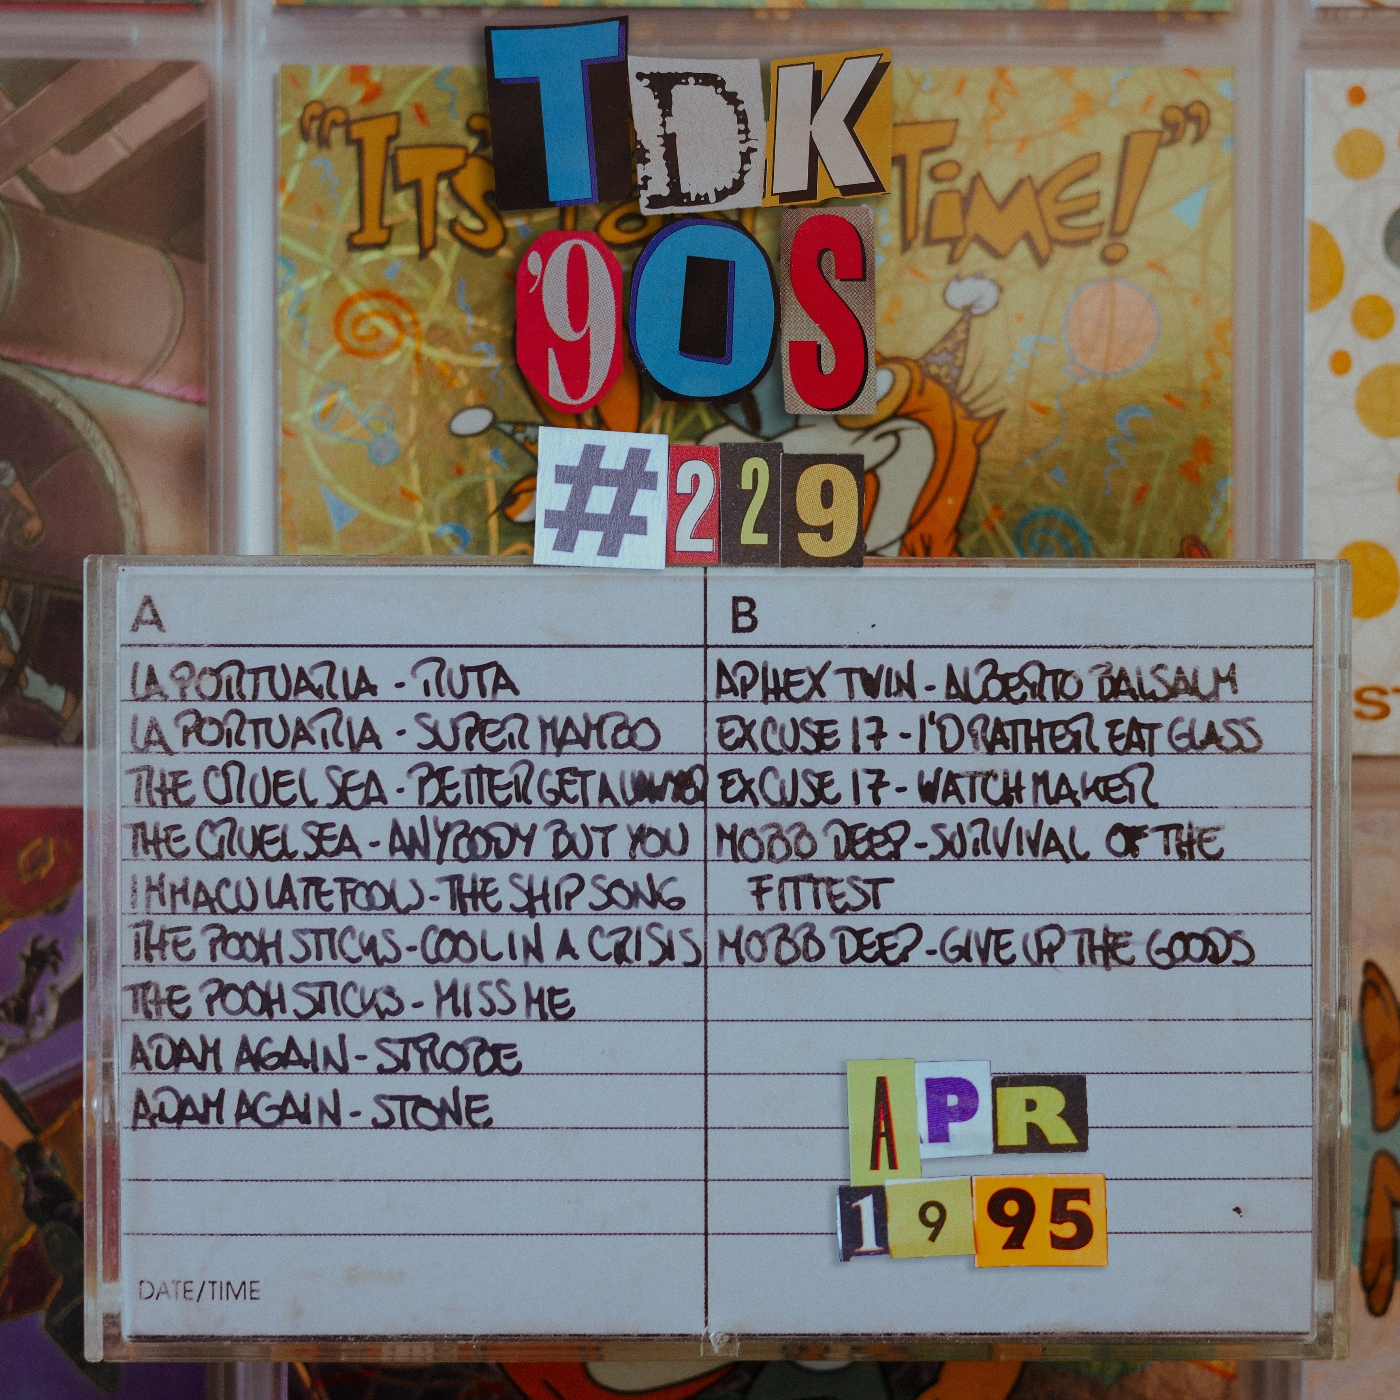 TDK
"IT'S TIME!"
'90S
#229
A
LA PORTUARIA - RUTA
LA PORTUARIA - SUPER MAMBO
THE CRUEL SEA - BETTER GET A
THE CRUEL SEA - ANYBODY BUT YOU
IMMACULATE FOOLS - THE SHIP SONG
THE POOH STICKS - COOL IN A CRISIS
THE POOH STICKS - MISS ME
ADAM AGAIN - STROBE
ADAM AGAIN - STONE
DATE/TIME
B
APHEX TWIN - ALBERTO BALSALM
EXCUSE 17 - I'D RATHER EAT GLASS
EXCUSE 17 - WATCHMAKER
MOBB DEEP - SURVIVAL OF THE
FITTEST
MOBB DEEP - GIVE UP THE GOODS
APR
1995